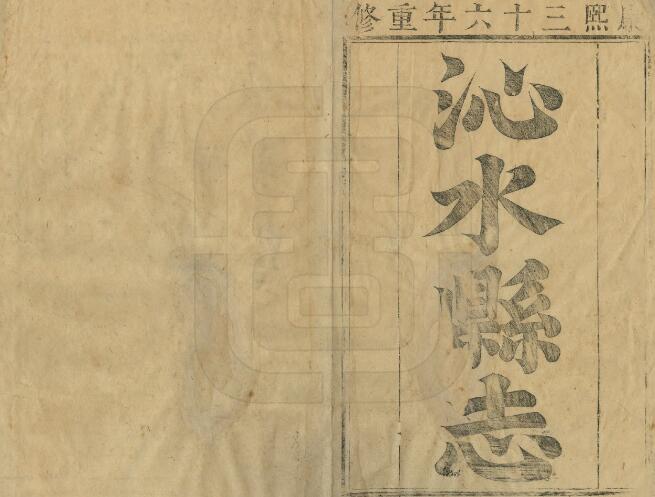 康熙三十六年重修
沁水縣志